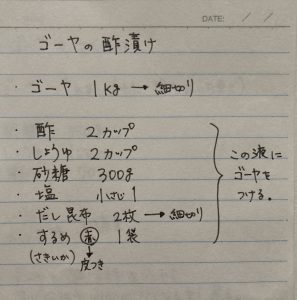 DATE: / /
ゴーヤの酢漬け
・ゴーヤ 1kg → 細切り
・酢 2カップ
・しょうゆ 2カップ
・砂糖 300g
・塩 小さじ1
・だし昆布 2枚 → 細切り
・するめ 赤 1袋
(さきいか) 皮つき
この液に
ゴーヤを
つける。